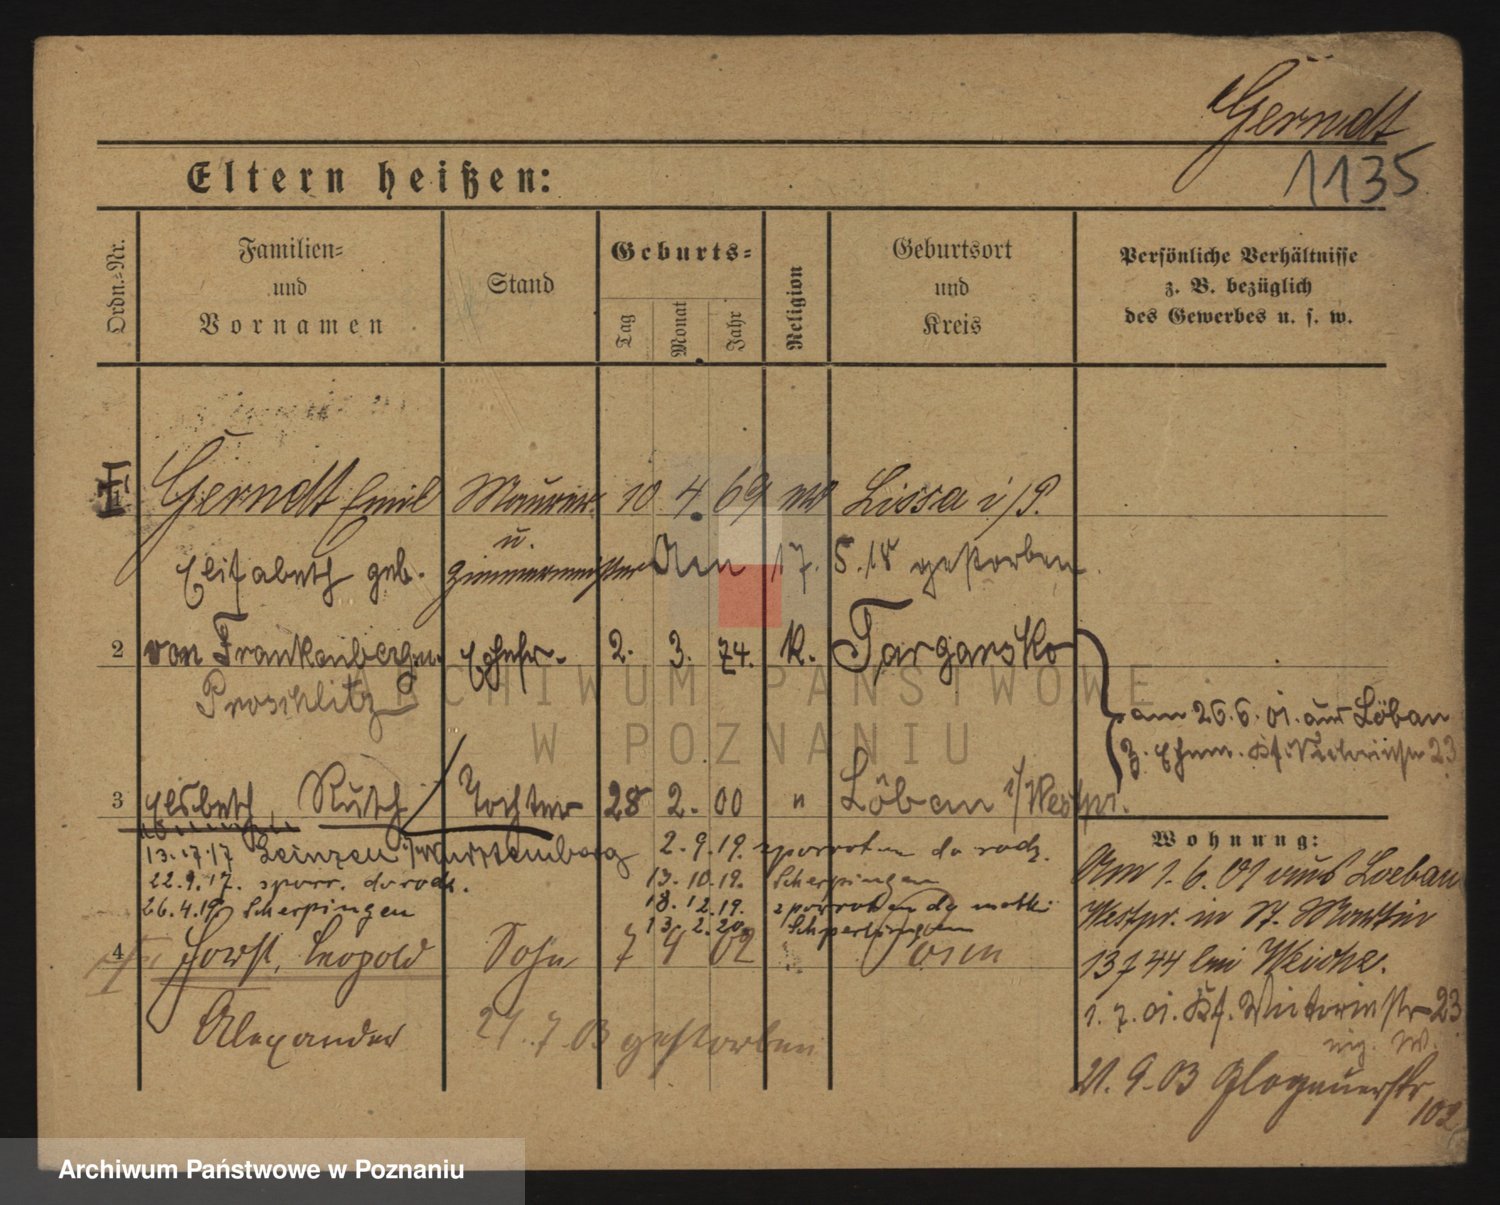 Gerndt
1135
Eltern heißen:
Ordn.=Nr.
Familien=
und
Vornamen
Stand
Geburts=
Tag
Monat
Jahr
Religion
Geburtsort
und
Kreis
Persönliche Verhältnisse
z. B. bezüglich
des Gewerbes u. s. w.
1 Gerndt Emil Maurer 10 4 69 Lissa i/P.
u.
Elisabeth geb. Zimmermeister Am 17. 5. 18 gestorben.
2 von Frankenberg u. Ehefr. 2. 3. 74. K. Targansko
Proschlitz
am 26.6.01. aus Löbau
z. Ehem. 23
3 Elsbeth Ruth Tochter 28 2. 00 " Löbau i/Westpr.
Wohnung:
13.7.17 Leinzell i/Württemberg 2.9.19. zpowrotem do rodz.
22.9.17. zpowr. do rodz. 13.10.19. Scherpingen
26.4.19 Scherpingen 18.12.19. zpowrotem do matki
13.2.20. Scherpingen
4 Horst, Leopold Sohn 7 4 02 " Posen
Alexander 21.7.03 gestorben
Am 1.6.01 aus Loebau
Westpr. in St. Martin
13744 bei Weiche.
1.7.01. Victoriastr 23
21.9.03 Glogauerstr
102
ARCHIWUM PAŃSTWOWE
W POZNANIU
Archiwum Państwowe w Poznaniu